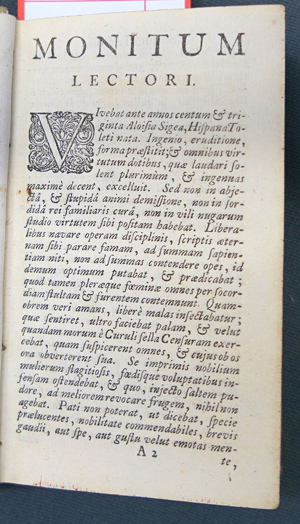 MONITUM
LECTORI.
VIvebat ante annos centum & tri-
ginta Aloisia Sigea, Hispana To-
leti nata. Ingenio, eruditione,
forma præstitit; & omnibus vir-
tutum dotibus, quæ laudari so-
lent plurimùm, & ingenuas
maximè decent, excelluit. Sed non in abje-
ctâ, & stupidâ animi demissione, non in sor-
didâ rei familiaris curâ, non in vili nugarum
studio virtutem sibi positam habebat. Libera-
libus navare operam disciplinis, scriptis æter-
nam sibi parare famam, ad summam sapien-
tiam niti, non ad summas contendere opes, id
demum optimum putabat, & prædicabat;
quod tamen pleræque fœminæ omnes per socor-
diam stultam & furentem contemnunt. Quam-
obrem veri amans, liberè malas insectabatur;
quæ sentiret, ultro faciebat palam, & velut
quandam morum è Curuli sella Censuram exer-
cebat, quam suspicerent omnes, & cujus ob os
ora obverterent sua. Se imprimis nobilium
mulierum flagitiosis, fœdisque voluptatibus in-
fensam ostendebat, & quo, injecto saltem pu-
dore, ad meliorem revocare frugem, nihil non
agebat. Pati non poterat, ut dicebat, specie
prælucentes, nobilitate commendabiles, brevis
gaudii, aut spe, aut gustu velut emotas men-
A 2
te,